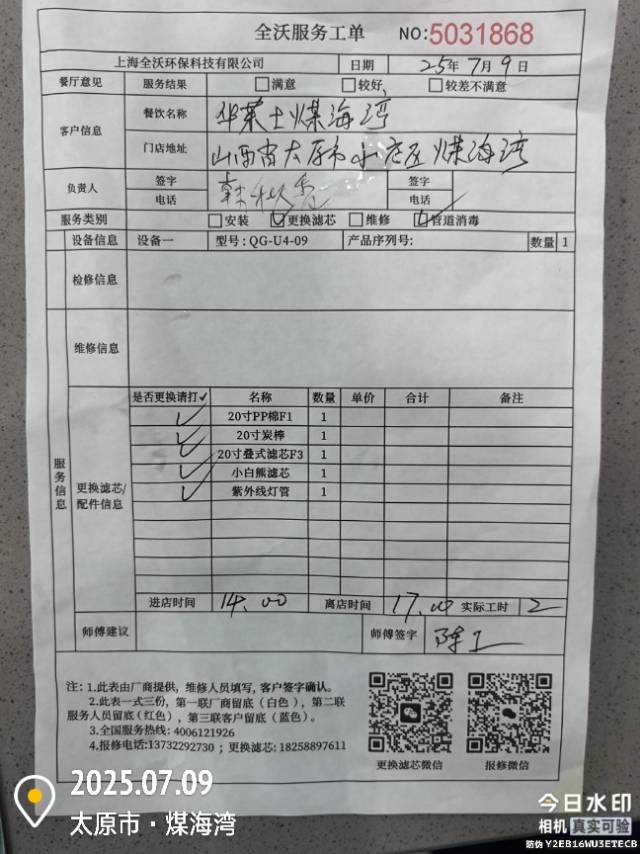 全沃服务工单 NO:5031868
上海全沃环保科技有限公司 日期 25年7月9日
餐厅意见 服务结果 □满意 □较好, □较差不满意
客户信息 餐饮名称 华莱士煤海湾
门店地址 山西省太原市小店区煤海湾
负责人 签字 签字
电话 电话
服务类别 □安装 ☑更换滤芯 □维修 ☑管道消毒
设备信息 设备一 型号: QG-U4-09 产品序列号: 数量 1
检修信息
维修信息
服务信息
更换滤芯/配件信息
是否更换请打✓ 名称 数量 单价 合计 备注
✓ 20寸PP棉F1 1
✓ 20寸炭棒 1
✓ 20寸叠式滤芯F3 1
✓ 小白熊滤芯 1
✓ 紫外线灯管 1
进店时间 14.00 离店时间 17.00 实际工时 2
师傅建议 师傅签字 陈工
注: 1.此表由厂商提供, 维修人员填写, 客户签字确认。
2.此表一式三份, 第一联厂商留底(白色), 第二联
服务人员留底(红色), 第三联客户留底(蓝色)。
3.全国服务热线: 4006121926
4.报修电话:13732292730; 更换滤芯: 18258897611
更换滤芯微信 报修微信
2025.07.09
太原市·煤海湾
今日水印
相机 真实可验
防伪 Y2EB16WU3ETECB